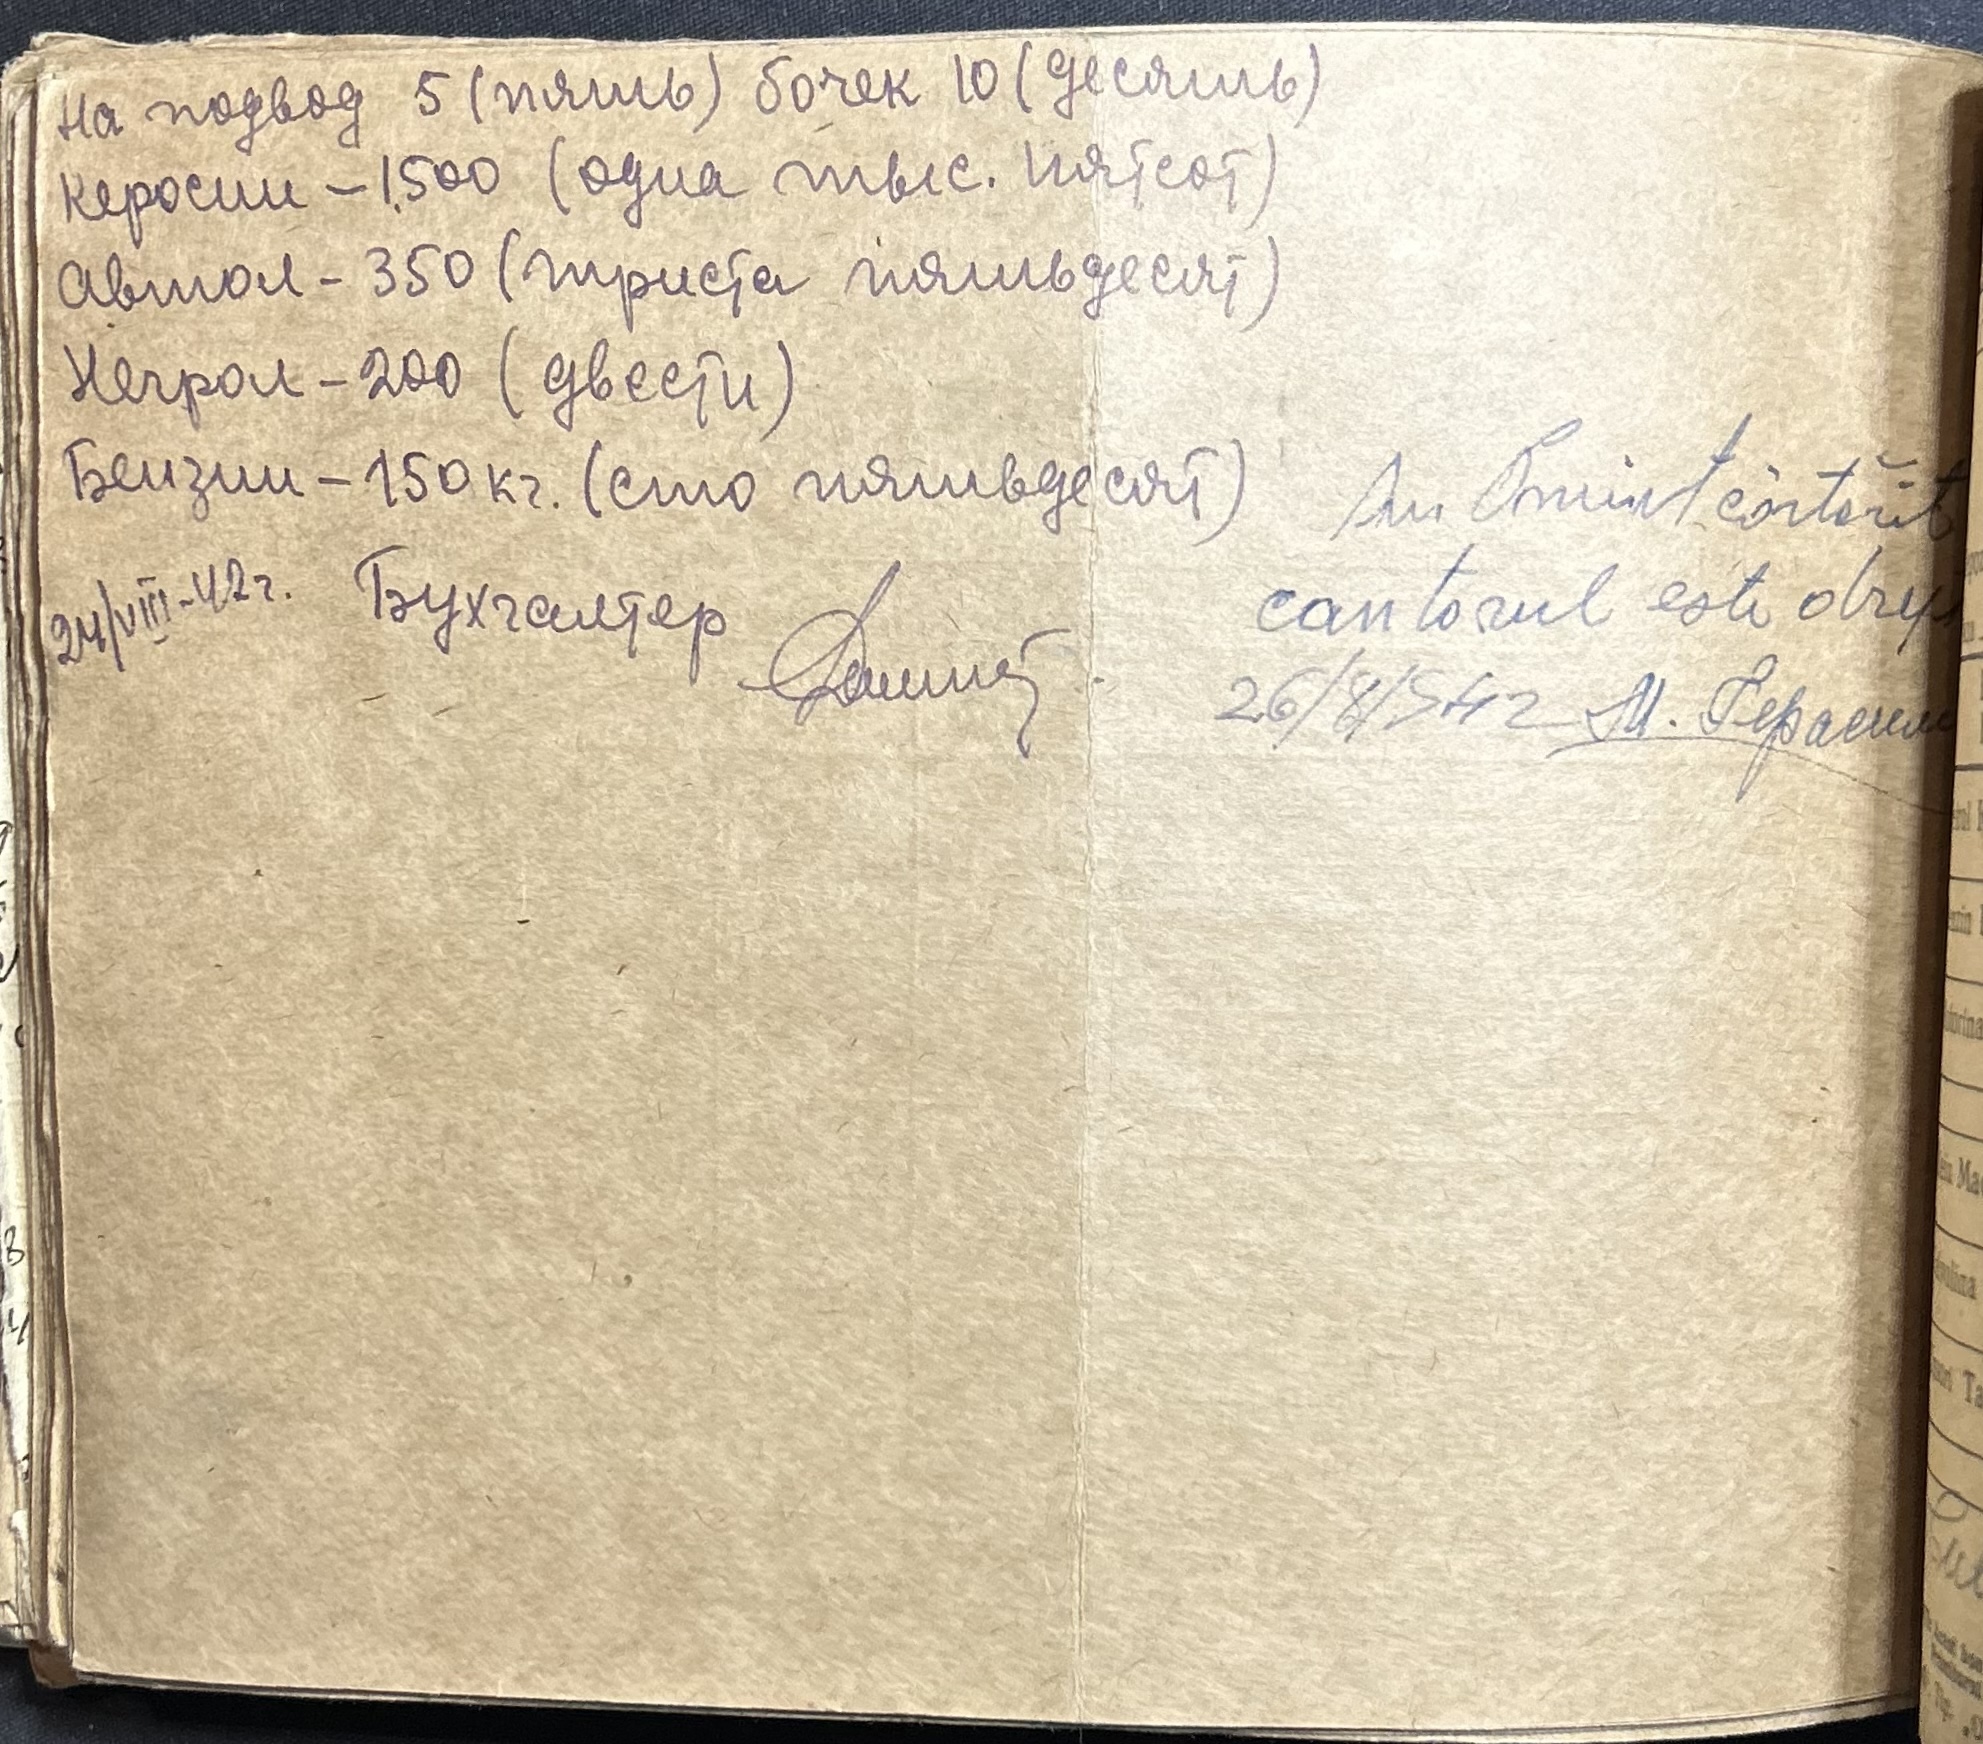 На подвод 5 (пять) бочек 10 (десять)
Керосин – 1,500 (одна тыс. пятсот)
Автол – 350 (триста пятьдесят)
Негрол – 200 (двести)
Бензин – 150 кг. (сто пятьдесят)
24/VIII-42г. Бухгалтер
cantorul este
26/8/942 М. Герасим